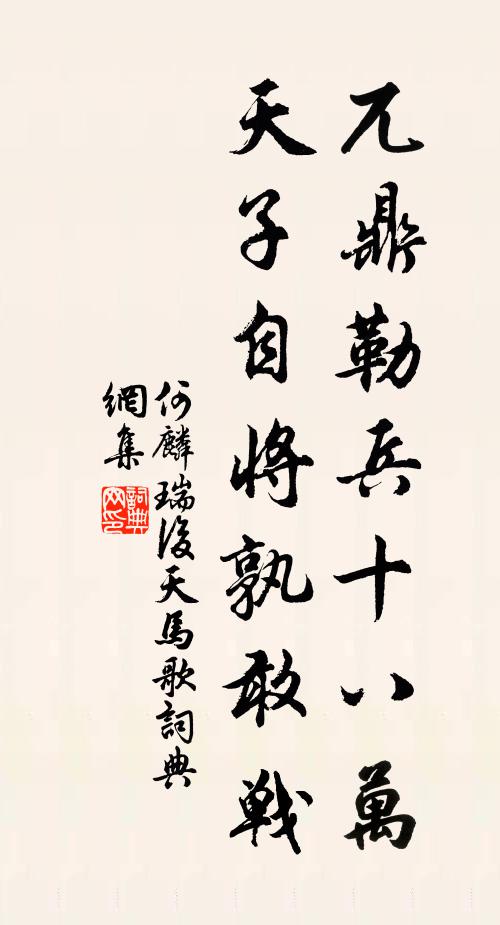 兀鼎勒兵十八萬
天子自將孰敢戰
何麟瑞後天馬歌詞典
網集
詞典
网印